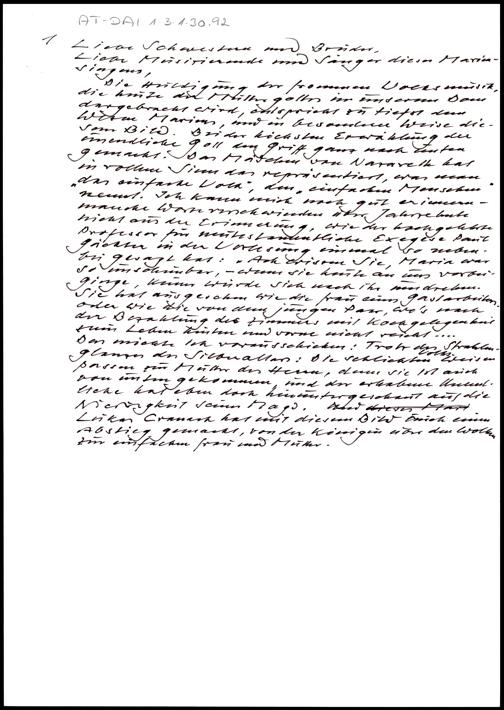 AT-DAI 1.3.1.30.92
1
Liebe Schwestern und Brüder,
Liebe Musizierende und Sänger dieses Marien-
singens,
Die Huldigung der frommen Volksmusik,
die heute der Mutter Gottes in unserem Dom
dargebracht wird, entspricht zu tiefst dem
Wesen Mariens, und in besonderer Weise die-
sem Bild. Bei der höchsten Erwählung der
unendliche Gott den Griff ganz nach unten
gemacht: Das Mädchen von Nazareth hat
im vollen Sinn das repräsentiert, was man
"das einfache Volk", den "einfachen Menschen"
nennt. Ich kann mich noch gut erinnern -
manche Worte verschwinden über Jahrzehnte
nicht aus der Erinnerung, wie der hochgelehrte
Professor für neutestamentliche Exegese Paul
Gächter in der Vorlesung einmal so neben-
bei gesagt hat: "Ach wissen Sie, Maria war
so unscheinbar, - wenn sie heute an uns vorbei-
ginge, keiner würde sich nach ihr umdrehen.
Sie hat ausgesehen wie die Frau eines Gastarbeiters.
oder wie die von dem jungen Paar, wo's nach
der Bezahlung des Zimmers mit Kochgelegenheit
zum Leben hinten und vorne nicht reicht....
Das möchte ich vorausschicken: Trotz des Strahlen-
glanzes des Silberaltars: Die schlichten Weisen
passen zur Mutter des Herrn, denn sie ist auch
von unten gekommen, und der erhabene Unend-
liche hat eben doch heruntergeschaut auf die
Niedrigkeit seiner Magd. Und dieser
Lukas Cranach hat mit diesem Bild auch einen
Abstieg gemacht, von der Königin über den Wolken
zur einfachen Frau und Mutter.